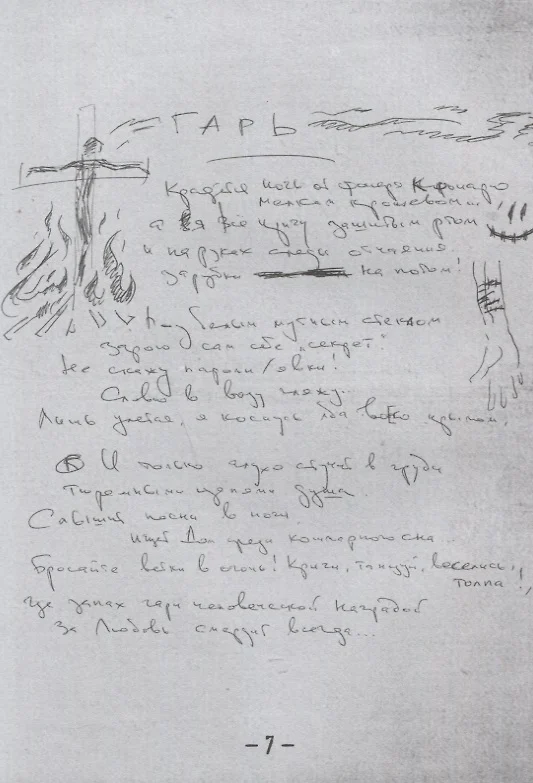 ГАРЬ
Крадётся ночь от фонаря к фонарю
мелким крошевом...
а я всё кричу зашитым ртом
и на руках среди отчаяния
зарубки на потом!
Под белым мутным стеклом
зарою сам себе "секрет".
Не скажу пароли/явки!
Слово в воду
Лишь улетая, я коснусь крылом.
И только глухо стучит в груди
тюремными цепями душа.
Слышит песни в ночи.
Ищет Дом среди кошмарного сна...
Бросайте ветки в огонь! Кричи, танцуй, веселись,
толпа!
где запах гари человеческой наградой
За Любовь смердит всегда...
-7-